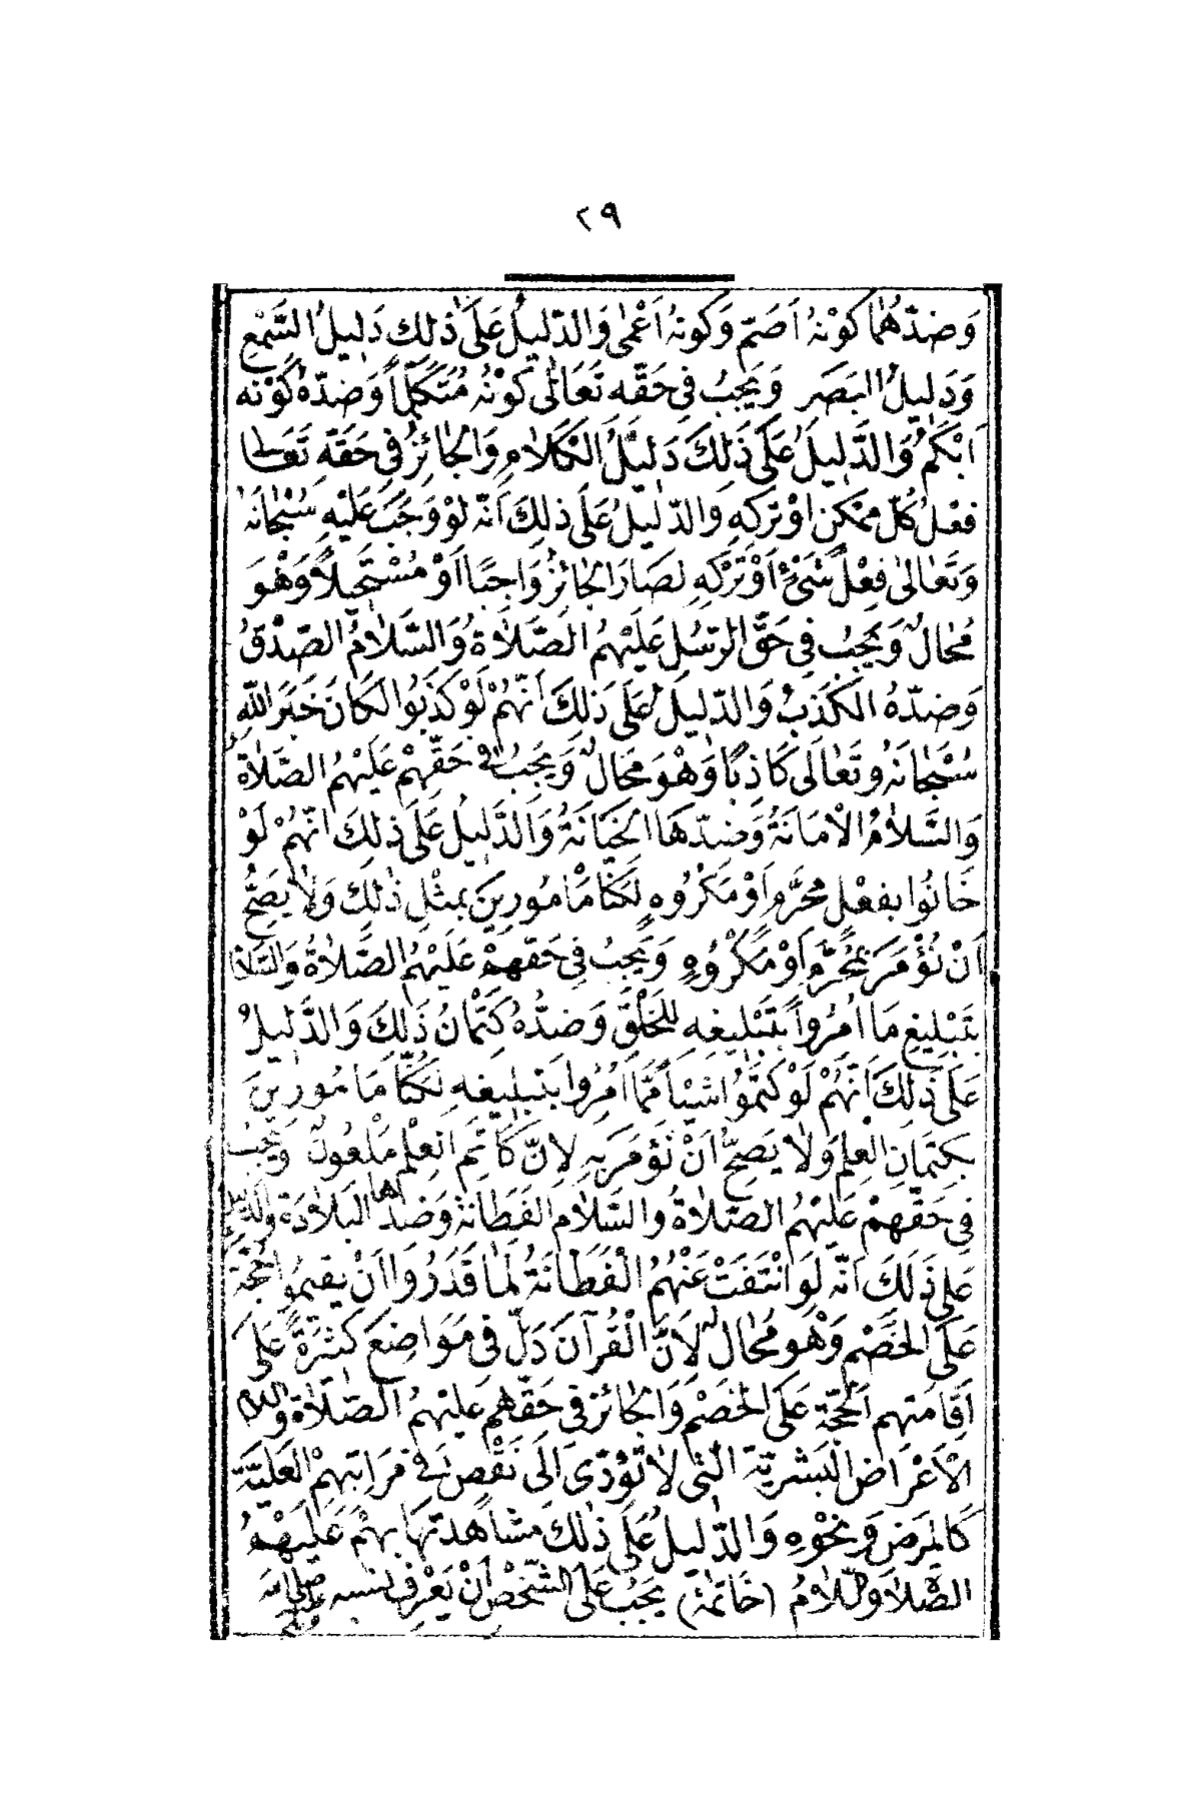 ٢٩
وَضِدُّهُمَا كَوْنُهُ اَصَمَّ وَكَوْنُهُ اَعْمٰى وَالدَّلِيلُ عَلَى ذٰلِكَ دَلِيلُ السَّمْعِ
وَدَلِيلُ الْبَصَرِ وَيَجِبُ فِي حَقِّهِ تَعَالٰى كَوْنُهُ مُتَكَلِّمًا وَضِدُّهُ كَوْنُهُ
اَبْكَمُ وَالدَّلِيلُ عَلَى ذَلِكَ دَلِيلُ الْكَلَامِ وَالْجَائِزُ فِي حَقِّهِ تَعَالَى
فِعْلُ كُلِّ مُمْكِنٍ اَوْ تَرْكِهِ وَالدَّلِيلُ عَلَى ذَلِكَ اَنَّهُ لَوْ وَجَبَ عَلَيْهِ سُبْحَانَهُ
وَتَعَالٰى فِعْلُ شَىْءٍ اَوْ تَرْكِهِ لَصَارَ الْجَائِزُ وَاجِبًا اَوْ مُسْتَحِيلًا وَهُوَ
مُحَالٌ وَيَجِبُ فِي حَقِّ الرُّسُلِ عَلَيْهِمُ الصَّلَاةُ وَالسَّلَامُ الصِّدْقُ
وَضِدُّهُ الْكَذِبُ وَالدَّلِيلُ عَلَى ذَلِكَ اَنَّهُمْ لَوْ كَذَبُوا لَكَانَ خَبَرُ اللّٰهِ
سُبْحَانَهُ وَتَعَالَى كَاذِبًا وَهُوَ مُحَالٌ وَيَجِبُ فِي حَقِّهِمْ عَلَيْهِمُ الصَّلَاةُ
وَالسَّلَامُ الْاَمَانَةُ وَضِدُّهَا الْخِيَانَةُ وَالدَّلِيلُ عَلَى ذٰلِكَ اَنَّهُمْ لَوْ
خَانُوا بِفِعْلِ مُحَرَّمٍ اَوْ مَكْرُوهٍ لَكُنَّا مَأْمُورِينَ بِمِثْلِ ذٰلِكَ وَلَا يَصِحُّ
اَنْ نُؤْمَرَ بِمُحَرَّمٍ اَوْ مَكْرُوهٍ وَيَجِبُ فِي حَقِّهِمْ عَلَيْهِمُ الصَّلَاةُ وَالسَّلَامُ
تَبْلِيغِ مَا اُمِرُوا بِتَبْلِيغِهِ لِلْخَلْقِ وَضِدُّهُ كِتْمَانُ ذَلِكَ وَالدَّلِيلُ
عَلَى ذَلِكَ اَنَّهُمْ لَوْ كَتَمُوا شَيْئًا مِمَّا اُمِرُوا بِتَبْلِيغِهِ لَكُنَّا مَأْمُورِينَ
بِكِتْمَانِ الْعِلْمِ وَلَا يَصِحُّ اَنْ نُؤْمَرَ بِهِ لِاَنَّ كَاتِمَ الْعِلْمِ مَلْعُونٌ وَيَجِبُ
فِي حَقِّهِمْ عَلَيْهِمُ الصَّلَاةُ وَالسَّلَامُ الْفَطَانَةُ وَضِدُّهَا الْبَلَادَةُ وَالدَّلِيلُ
عَلَى ذَلِكَ اَنَّهُ لَوِ انْتَفَتْ عَنْهُمُ الْفَطَانَةُ لَمَا قَدَرُوا اَنْ يُقِيمُوا حُجَّةً
عَلَى الْخَصْمِ وَهُوَ مُحَالٌ لِاَنَّ الْقُرْآنَ دَلَّ فِي مَوَاضِعَ كَثِيرَةٍ عَلَى
اِقَامَتِهِمِ الْحُجَّةَ عَلَى الْخَصْمِ وَالْجَائِزُ فِي حَقِّهِمْ عَلَيْهِمُ الصَّلَاةُ وَالسَّلَامُ
الْاَعْرَاضُ الْبَشَرِيَّةُ الَّتِي لَا تُؤَدِّى اِلَى نَقْصٍ فِي مَرَاتِبِهِمُ الْعَلِيَّةِ
كَالْمَرَضِ وَنَحْوِهِ وَالدَّلِيلُ عَلَى ذٰلِكَ مُشَاهَدَتُهَا بِهِمْ عَلَيْهِمُ
الصَّلَاةُ وَالسَّلَامُ (خَاتِمَةٌ) يَجِبُ عَلَى الشَّخْصِ اَنْ يَعْرِفَ نَسَبَهُ صلى الله عليه وسلم